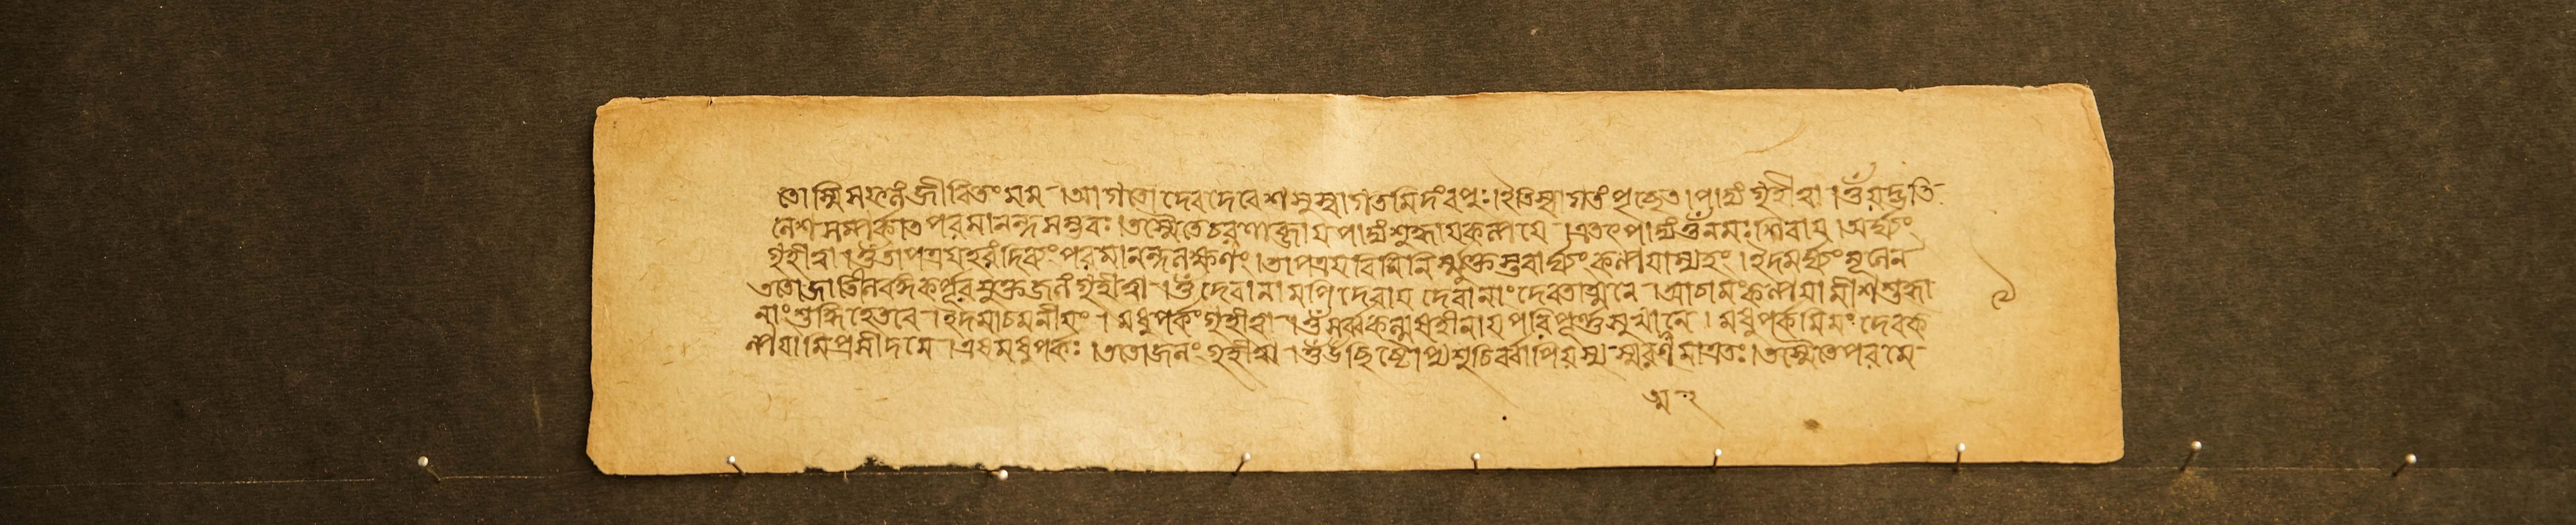 তোস্মি সফলং জীবিতং মম । আগতো দেবদেবেশ সুস্বাগতমিদং বপুঃ । ইতি স্বাগতং পৃচ্ছেত । পাদ্যং গৃহীত্বা । ওঁ যদ্ভক্তি
লেশসম্পর্কাত পরমানন্দসম্ভবঃ । তস্মৈ তে চরণাব্জায় পাদ্যং শুদ্ধায় কল্পয়ে । এতৎ পাদ্যং ওঁ নমঃ শিবায় । অর্ঘ্যং
গৃহীত্বা । ওঁ তাপত্রয়হরং দিব্যং পরমানন্দলক্ষণং । তাপত্রয়বিনির্মুক্ত তবার্ঘ্যং কল্পয়াম্যহং । ইদমর্ঘ্যং
ততো জাতীলবঙ্গকর্পূরযুক্তজলং গৃহীত্বা । ওঁ দেবানামপি দেবায় দেবানাং দেবতাত্মনে । আচামং কল্পয়ামীশ শুদ্ধা
নাং শুদ্ধিহেতবে । ইদমাচমনীয়ং । মধুপর্কং গৃহীত্বা । ওঁ সর্ব্বকল্মষহীনায় পরিপূর্ণসুখাত্মনে । মধুপর্কমিমং দেব ক
ল্পয়ামি প্রসীদ মে । এষ মধুপর্কঃ । ততো জলং গৃহীত্বা । ওঁ উচ্ছিষ্টোপ্যশুচির্বাপি যস্য স্মরণমাত্রতঃ । তস্মৈ তে পরমে